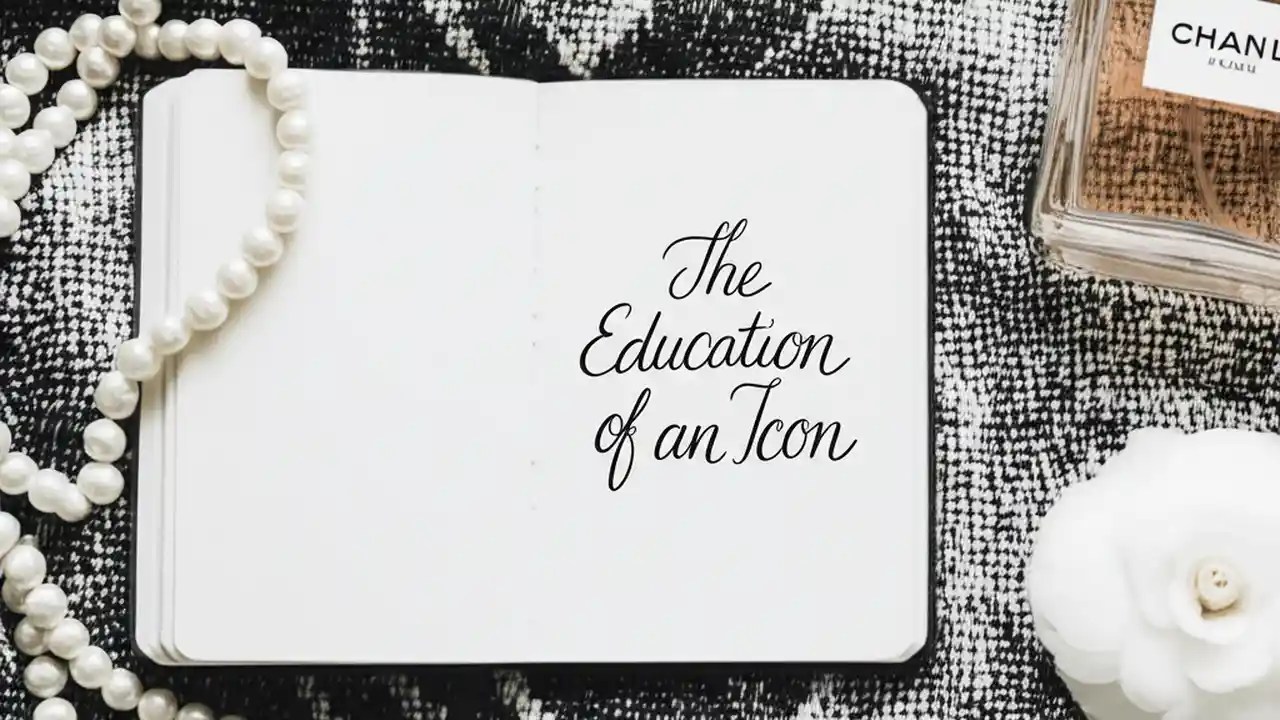 CHANL
The
Education
of an Icon